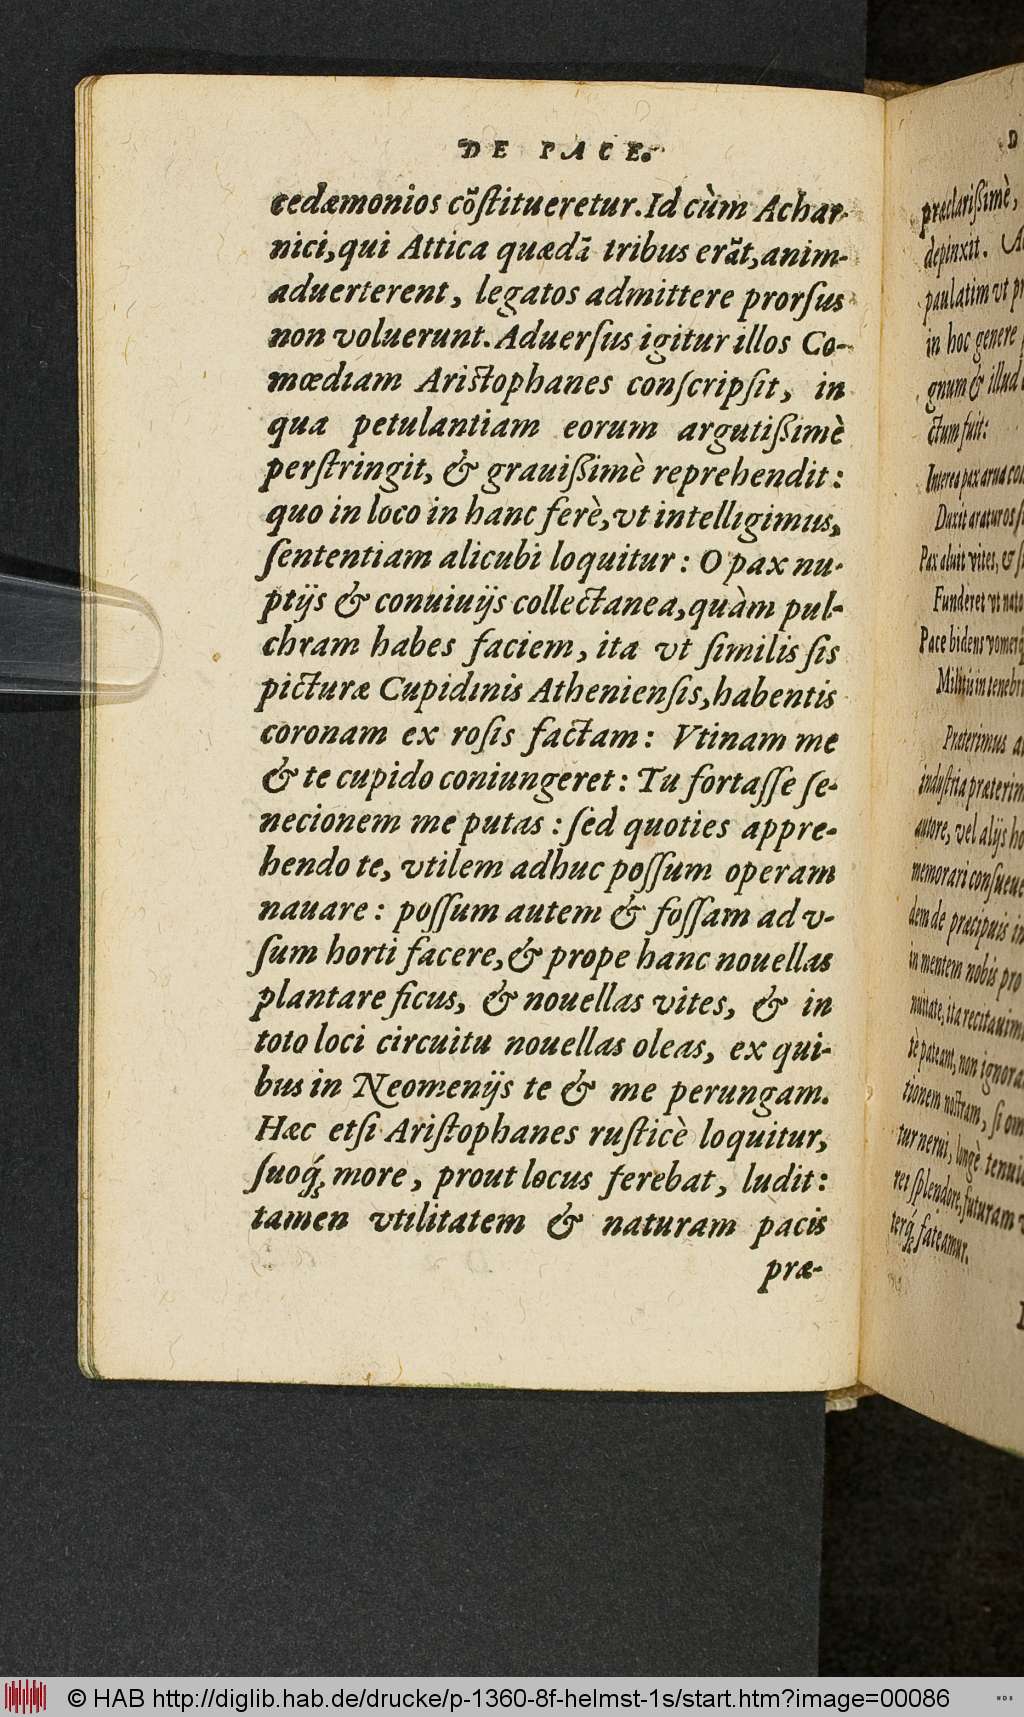 DE PACE.
cedæmonios cõſtitueretur. Id cùm Achar-
nici, qui Attica quædã tribus erãt, anim-
aduerterent, legatos admittere prorſus
non voluerunt. Aduerſus igitur illos Co-
mœdiam Ariſtophanes conſcripſit, in
qua petulantiam eorum argutiſſimè
perſtringit, & grauiſſimè reprehendit:
quo in loco in hanc ferè, vt intelligimus,
ſententiam alicubi loquitur: O pax nu-
ptijs & conuiuijs collectanea, quàm pul-
chram habes faciem, ita vt ſimilis ſis
picturæ Cupidinis Athenienſis, habentis
coronam ex roſis factam: Vtinam me
& te cupido coniungeret: Tu fortaſſe ſe-
necionem me putas: ſed quoties appre-
hendo te, vtilem adhuc poſſum operam
nauare: poſſum autem & foſſam ad v-
ſum horti facere, & prope hanc nouellas
plantare ficus, & nouellas vites, & in
toto loci circuitu nouellas oleas, ex qui-
bus in Neomenijs te & me perungam.
Hæc etſi Ariſtophanes ruſticè loquitur,
ſuoq́; more, prout locus ferebat, ludit:
tamen vtilitatem & naturam pacis
præ-
D
præclariſſimè,
depinxit. A
paulatim vt pr
in hoc genere
gnum & illud
ctum fuit:
Interea pax arua
Duxit araturos
Pax aluit vites, &
Funderet vt
Pace bidens vomerq
Militis in tenebris
Præterimus
induſtria præterim
autore, vel alijs ho
memorari conſueue
dem de præcipuis in
in mentem nobis pro
nuitate, ita recitauim
tè pateant, non ignora
tionem noſtram, ſi om
tur nerui, longè tenui
ret ſplendore, futuram
terq́; fateamur.
© HAB http://diglib.hab.de/drucke/p-1360-8f-helmst-1s/start.htm?image=00086